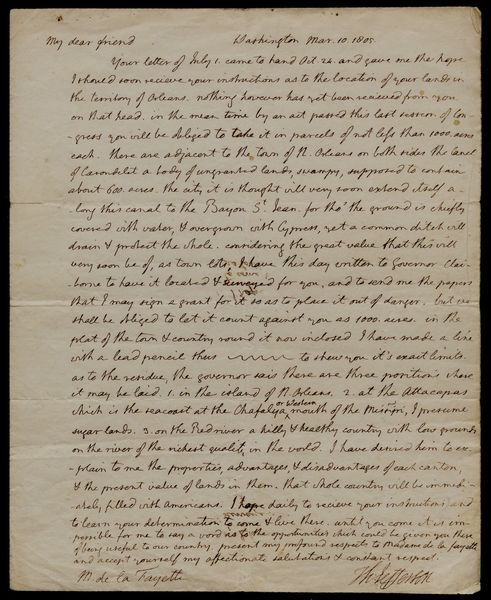 My dear friend Washington Mar. 10. 1805.
Your letter of July 1. came to hand Oct 24. and gave me the hope
I should soon recieve your instructions as to the location of your lands in
the territory of Orleans. nothing however has yet been recieved from you
on that head. in the mean time by an act passed this last session of Con-
gress you will be obliged to take it in parcels of not less than 1000. acres
each. there are adjacent to the town of N. Orleans on both sides the canal
of Carondelet a body of ungranted lands, swampy, supposed to contain
about 600. acres. the city it is thought will very soon extend itself a-
-long this canal to the Bayou St. Jean. for tho' the ground is chiefly
covered with water, & overgrown with Cypress, yet a common ditch will
drain & protect the whole. considering the great value that this will
very soon be of, as town lots, I have this day written to Governor Clai-
borne to have it located & surveyed for you, and to send me the papers
that I may sign a grant for it so as to place it out of danger. but we
shall be obliged to let it count against you as 1000. acres. in the
plat of the town & country round it now inclosed I have made a line
with a lead pencil thus to shew you it's exact limits.
as to the residue, the governor says there are three positions where
it may be laid. 1. in the island of N. Orleans. 2. at the Attacapas
which is the seacoast at the Chafalaya or Western mouth of the Missipi, I presume
sugar lands. 3. on the Red river a hilly & healthy country with low grounds
on the river of the richest quality in the world. I have desired him to ex-
-plain to me the properties, advantages, & disadvantages of each canton,
& the present value of lands in them. that whole country will be immedi-
-ately filled with Americans. I hope daily to recieve your instructions and
to learn your determination to come & live there. until you come it is im-
possible for me to say a word as to the opportunities which could be given you there
of being useful to our country. present my profound respects to Madame de la Fayette
and accept yourself my affectionate salutations & constant respect.
M. de la Fayette Th: Jefferson